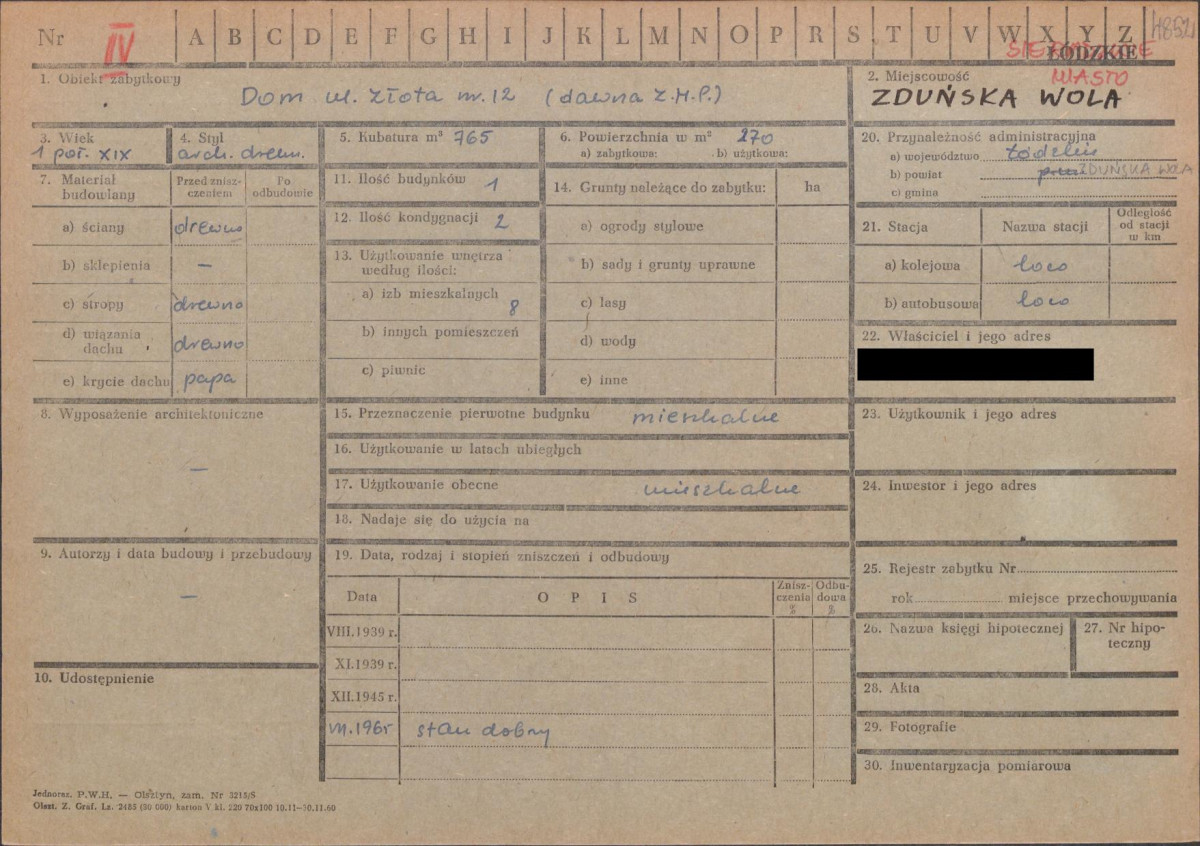 Nr IV A B C D E F G H I J K L M N O P R S T U V W X Y Z
ŁÓDZKIE
MIASTO
1. Obiekt zabytkowy
Dom ul. Złota nr. 12 (dawna Z.M.P.)
2. Miejscowość
ZDUŃSKA WOLA
3. Wiek
1 poł. XIX
4. Styl
arch. drewn.
5. Kubatura m³ 765
6. Powierzchnia w m² 270
a) zabytkowa: b) użytkowa:
7. Materiał budowiany
Przed znisz-
czeniem
Po
odbudowie
a) ściany drewno
b) sklepienia —
c) stropy drewno
d) wiązania
dachu drewno
e) krycie dachu papa
8. Wyposażenie architektoniczne
—
9. Autorzy i data budowy i przebudowy
—
10. Udostępnienie
11. Ilość budynków 1
12. Ilość kondygnacji 2
13. Użytkowanie wnętrza
według ilości:
a) izb mieszkalnych 8
b) innych pomieszczeń
c) piwnic
14. Grunty należące do zabytku: ha
a) ogrody stylowe
b) sady i grunty uprawne
c) lasy
d) wody
e) inne
15. Przeznaczenie pierwotne budynku mieszkalne
16. Użytkowanie w latach ubiegłych
17. Użytkowanie obecne mieszkalne
18. Nadaje się do użycia na
19. Data, rodzaj i stopień zniszczeń i odbudowy
Data OPIS Znisz-
czenia
%
Odbu-
dowa
%
VIII.1939 r.
XI.1939 r.
XII.1945 r.
VII.1965 stan dobry
20. Przynależność administracyjna
a) województwo łódzkie
b) powiat ZDUŃSKA WOLA
c) gmina
21. Stacja Nazwa stacji Odległość
od stacji
w km
a) kolejowa loco
b) autobusowa loco
22. Właściciel i jego adres
23. Użytkownik i jego adres
24. Inwestor i jego adres
25. Rejestr zabytku Nr
rok miejsce przechowywania
26. Nazwa księgi hipotecznej
27. Nr hipo-
teczny
28. Akta
29. Fotografie
30. Inwentaryzacja pomiarowa
Jednoraz. P.W.H. — Olsztyn, zam. Nr 3215/S
Olszt. Z. Graf. Lz. 2485 (30 000) karton V kl. 220 70x100 10.11—30.11.60